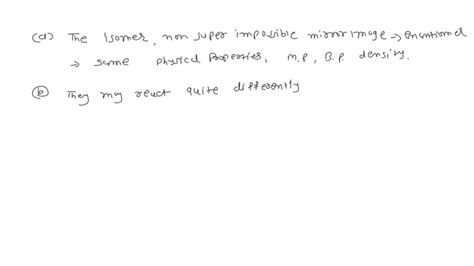 (a) The Isomer, non super impossible mirror image → Enantiomer
→ same physical Properties, M.P, B.P. density.
(b) They may react quite differently